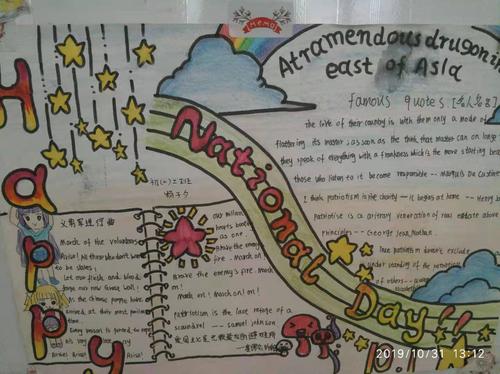 MEMO
Atramendous drugon in
east of Asia
Happy
National Day!!
famous quotes [名人名言]
The love of their country is with them only a mode of
flattering its master; as soon as the think that master can no longer
they speak of everything with a frankness which is the more startling because
those who listen to it become responsible -- Marquis De Custine
I think patriotism is like charity -- it begins at home -- Henry
Patriotism is a arbitrary veneration of real estate above
principles -- George Jean Nathan
True patriotism doesn't exclude
understanding of the patriotism
of others
义勇军进行曲
March of the Volunteers
Arise! All those who don't want
to be slaves;
Let our flesh and blood
forge our new Great Wall!
As the Chinese people have
arrived at their most perilous
time
Every person is forced to
Arise! Arise! Arise!
our million
hearts beating
as one
Brave the enemy's
fire. March
on!
Brave the enemy's fire. March
on!
March on! March on! on!
Patriotism is the last refuge of a
scoundrel -- samuel johnson
2019/10/31 13:12